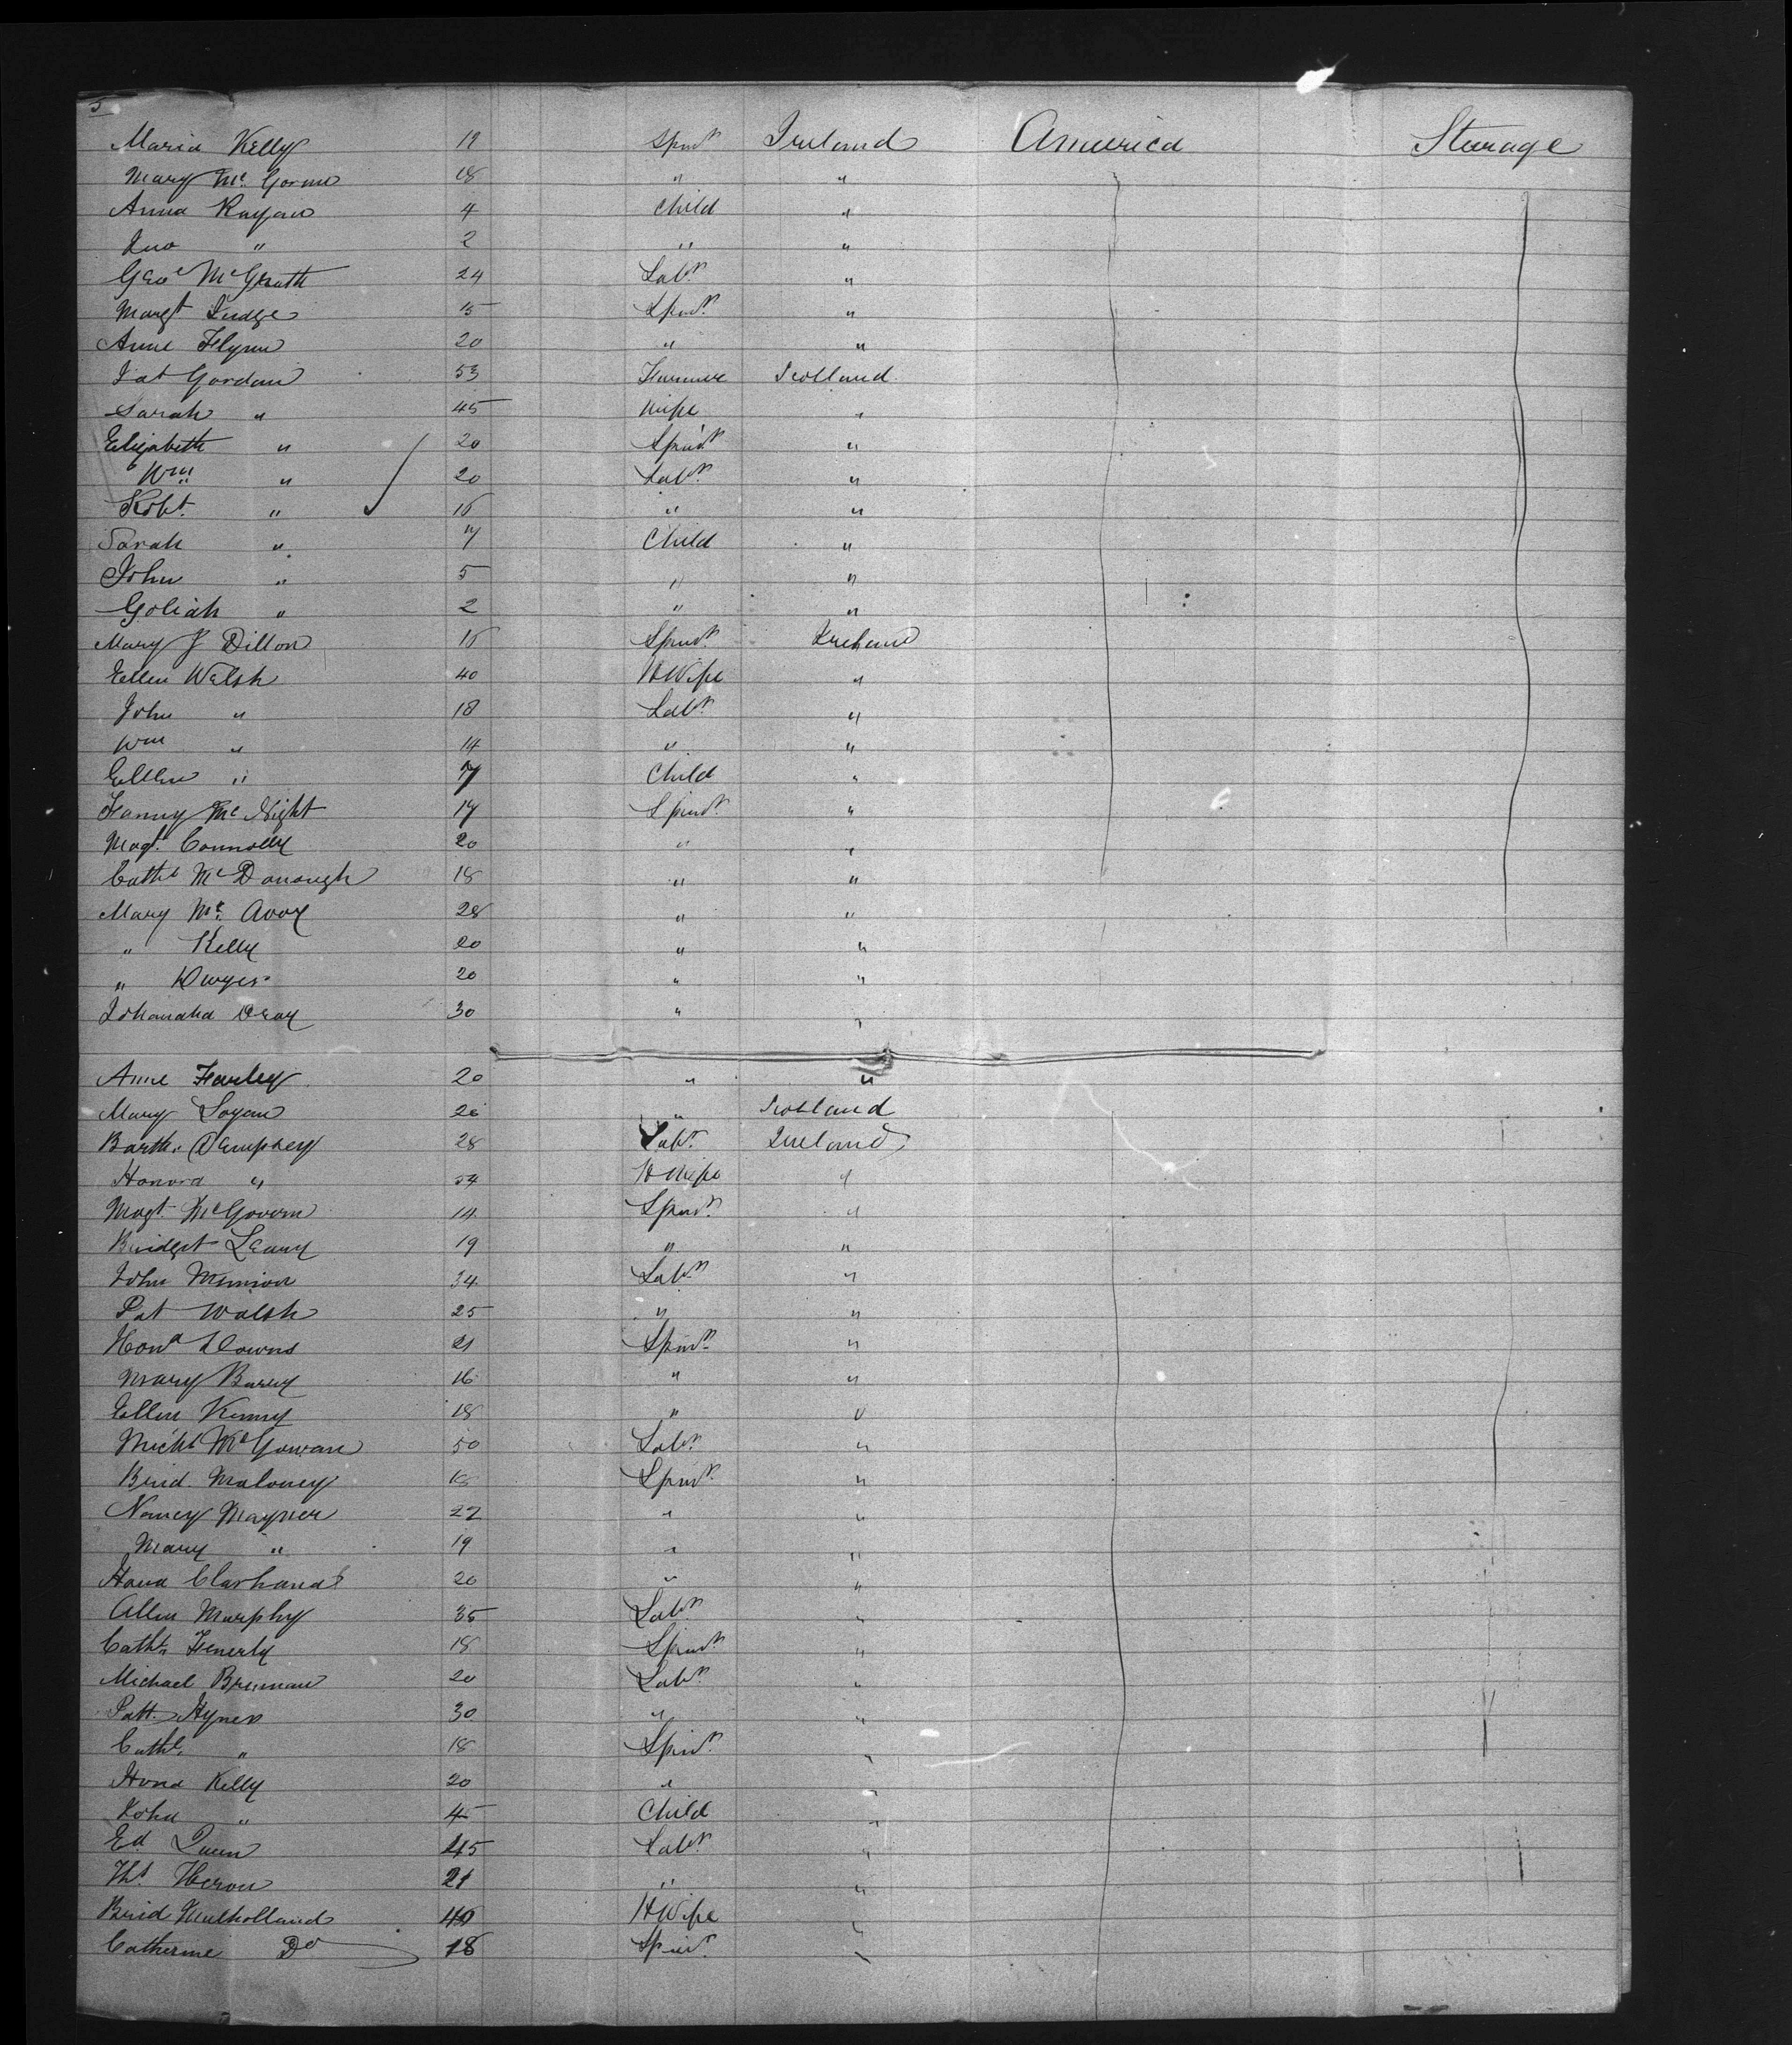 5
Maria Kelly 19 Spinr Ireland America Steerage
Mary Mc Gorme 18 " "
Anna Ragan 4 Child "
Jno " 2 " "
Geo McGrath 24 Labr "
Margt Judge 15 Spinr "
Anne Flynn 20 " "
Pat Gordan 53 Farmer Scotland
Sarah " 45 Wife "
Elizabeth " 20 Spinr "
Wm " 20 Labr "
Robt " 16 " "
Sarah " 7 Child "
John " 5 " "
Goliah " 2 " "
Mary J Dillon 16 Spinr Ireland
Ellen Welsh 40 HWife "
John " 18 Labr "
Wm " 14 " "
Ellen " 7 Child "
Fanny Mc Night 17 Spinr "
Magt Connolly 20 " "
Cathe McDonough 18 " "
Mary Mc Avoy 28 " "
" Kelly 20 " "
" Dwyer 20 " "
Johanaha Deay 30 " "
Anne Farley 20 " "
Mary Logan 20 " Scotland
Barth. Dempsey 28 Labr Ireland
Honora " 24 HWife "
Magt McGovern 14 Spinr "
Bridget Leary 19 " "
John 34 Labr "
Pat Walsh 25 " "
Hona Downs 21 Spinr "
Mary Barry 16 " "
Ellen Kenny 18 " "
Michl McGowan 50 Labr "
Brid. Maloney 18 Spinr "
Nancy Mayner 22 " "
Mary " 19 " "
Hana 20 " "
Allen Murphy 35 Labr "
Cathn Fenerty 18 Spinr "
Michael Brennan 20 Labr "
Patt Hynes 30 " "
Cathe " 18 Spinr "
Hona Kelly 20 " "
John " 4 Child "
Ed Quinn 45 Labr "
Ths Heron 21 " "
Brid Mulholland 40 HWife "
Catherine Do 18 Spinr "